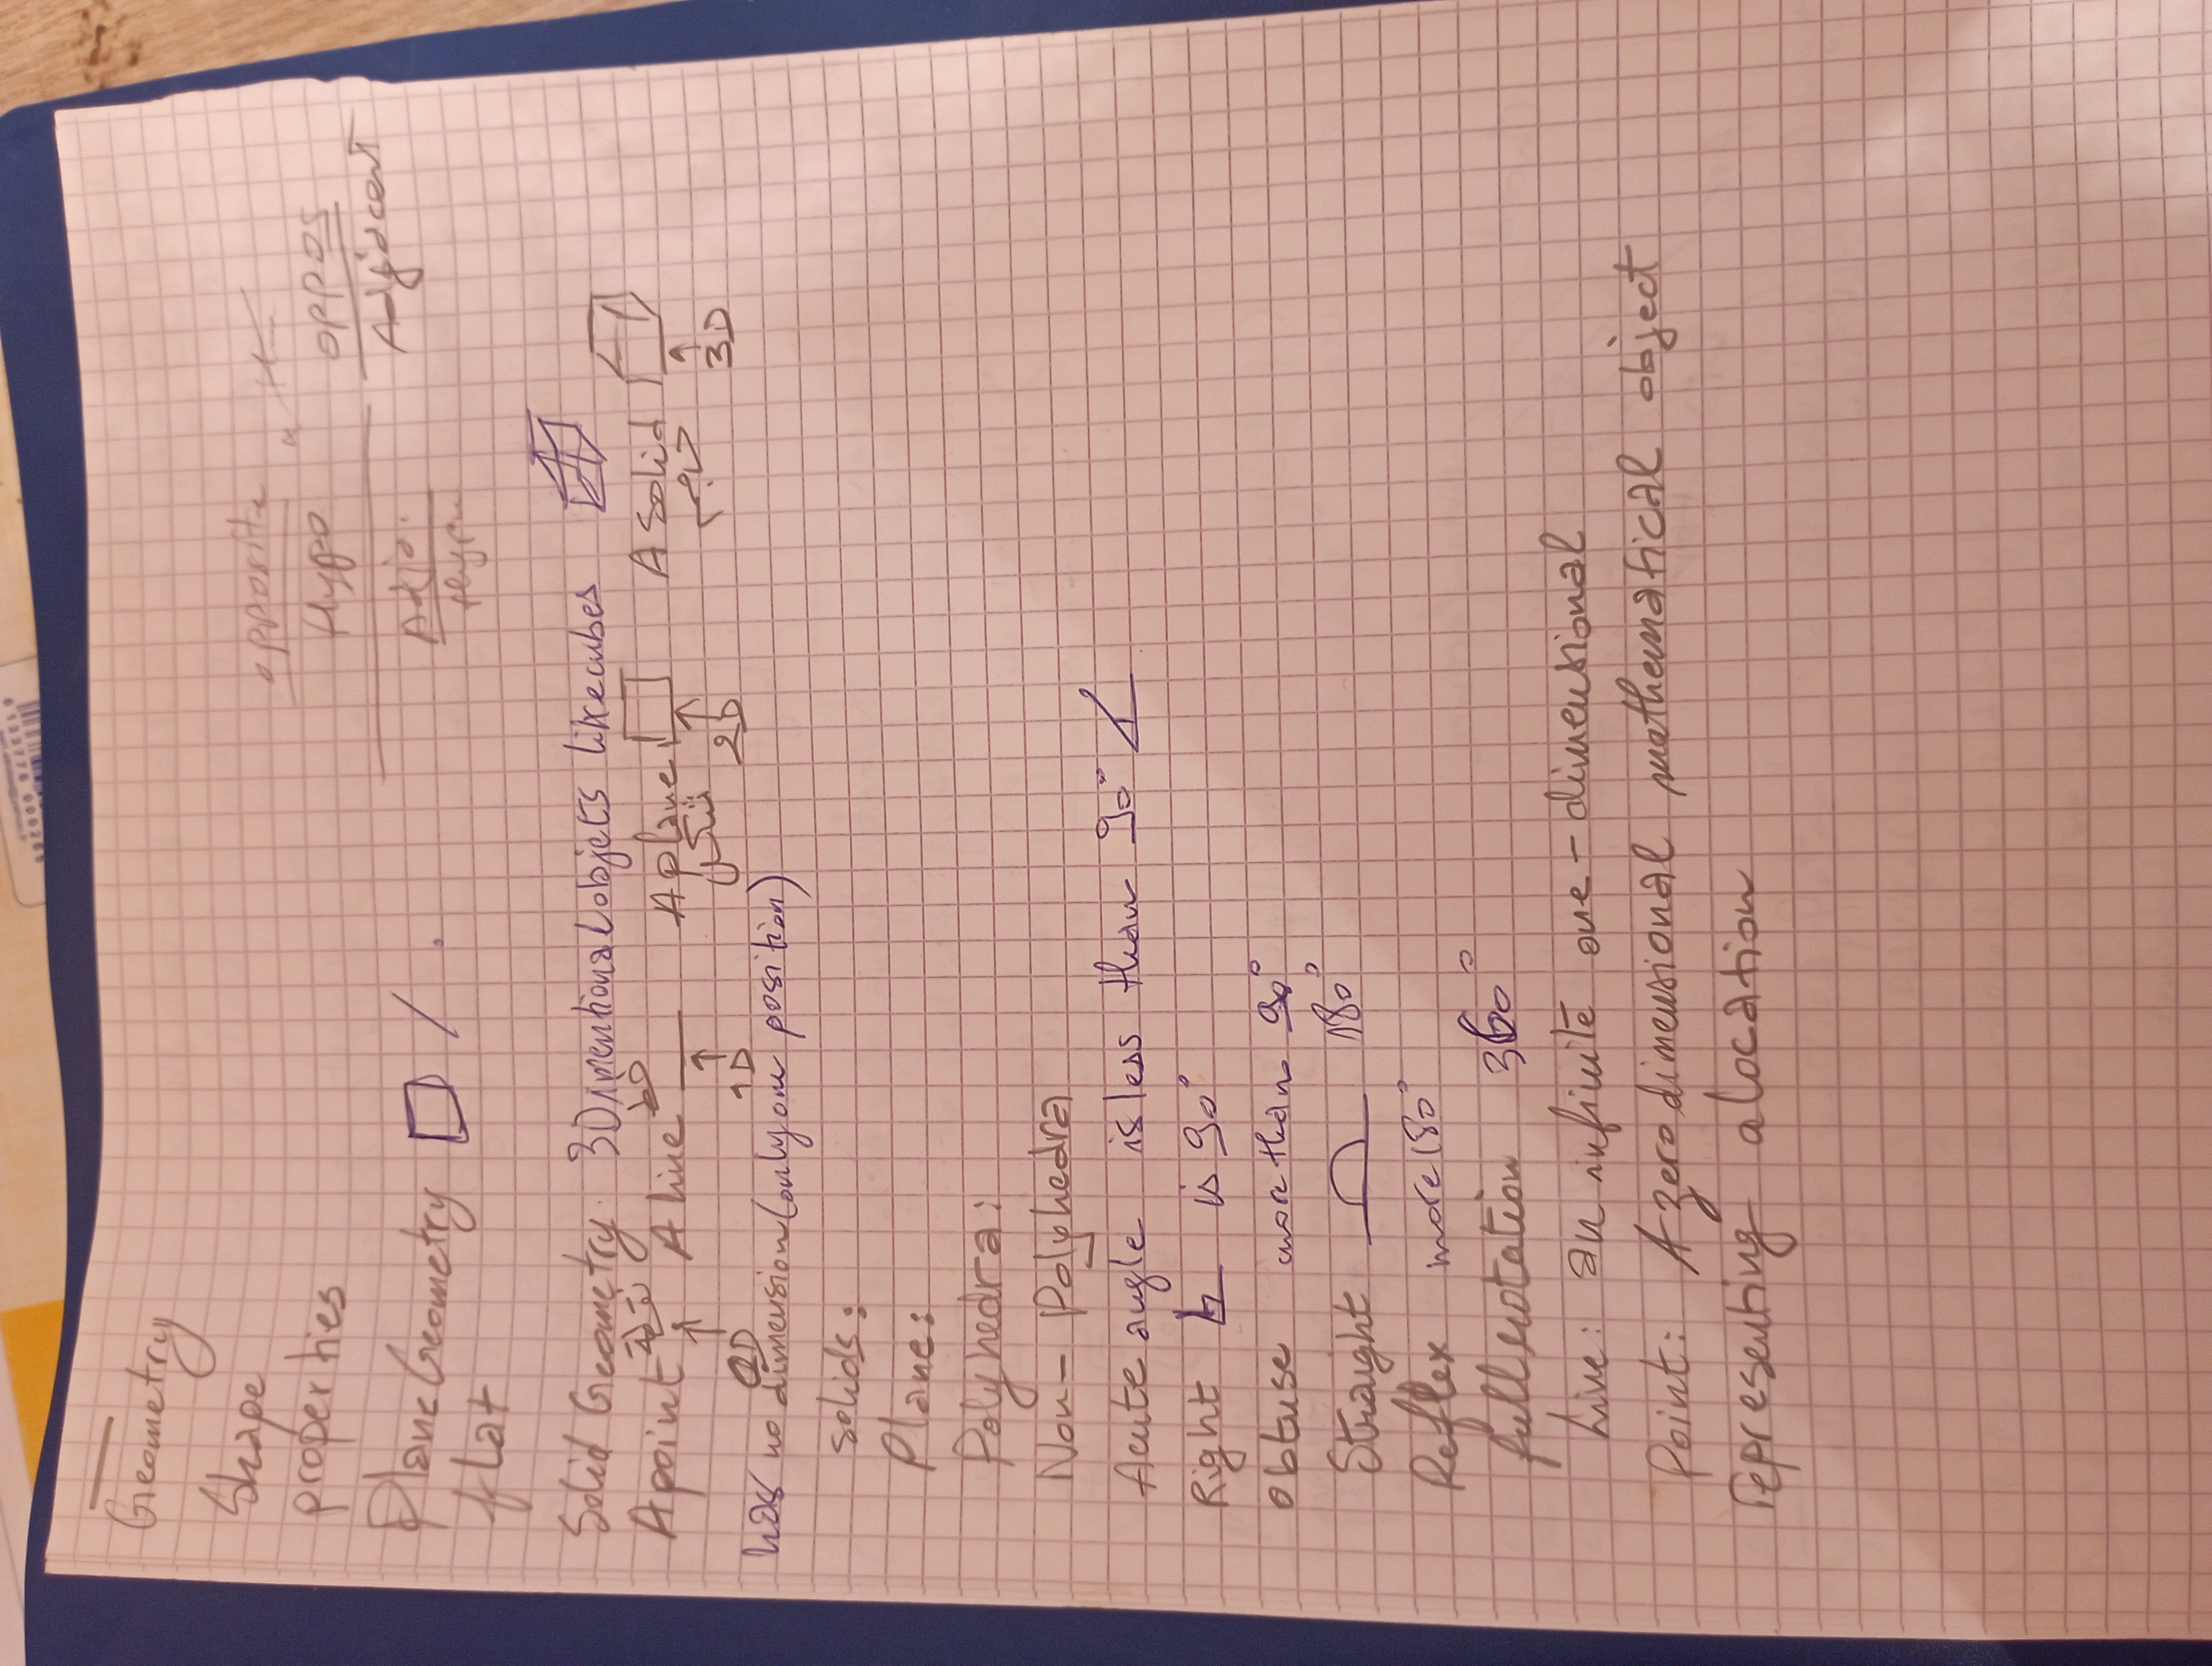 Geometry
Shape
properties
opposite
Hypo
oppos
Adjacent
Adja.
Hypo
Plane Geometry
flat
Solid Geometry. 3Dimentional objets like cubes
A point نقطة A line خط A plane شكل A Solid حجم
0D 1D 2D 3D
has no dimension (only one position)
solids:
Plane:
Polyhedra:
Non- Polyhedra
Acute angle is less than 90°
Right is 90°
obtuse more than 90°
Straight 180°
Reflex more 180°
full rotation 360°
Line: an infinite one-dimensional
Point: A zero dimensional mathematical object
representing a location